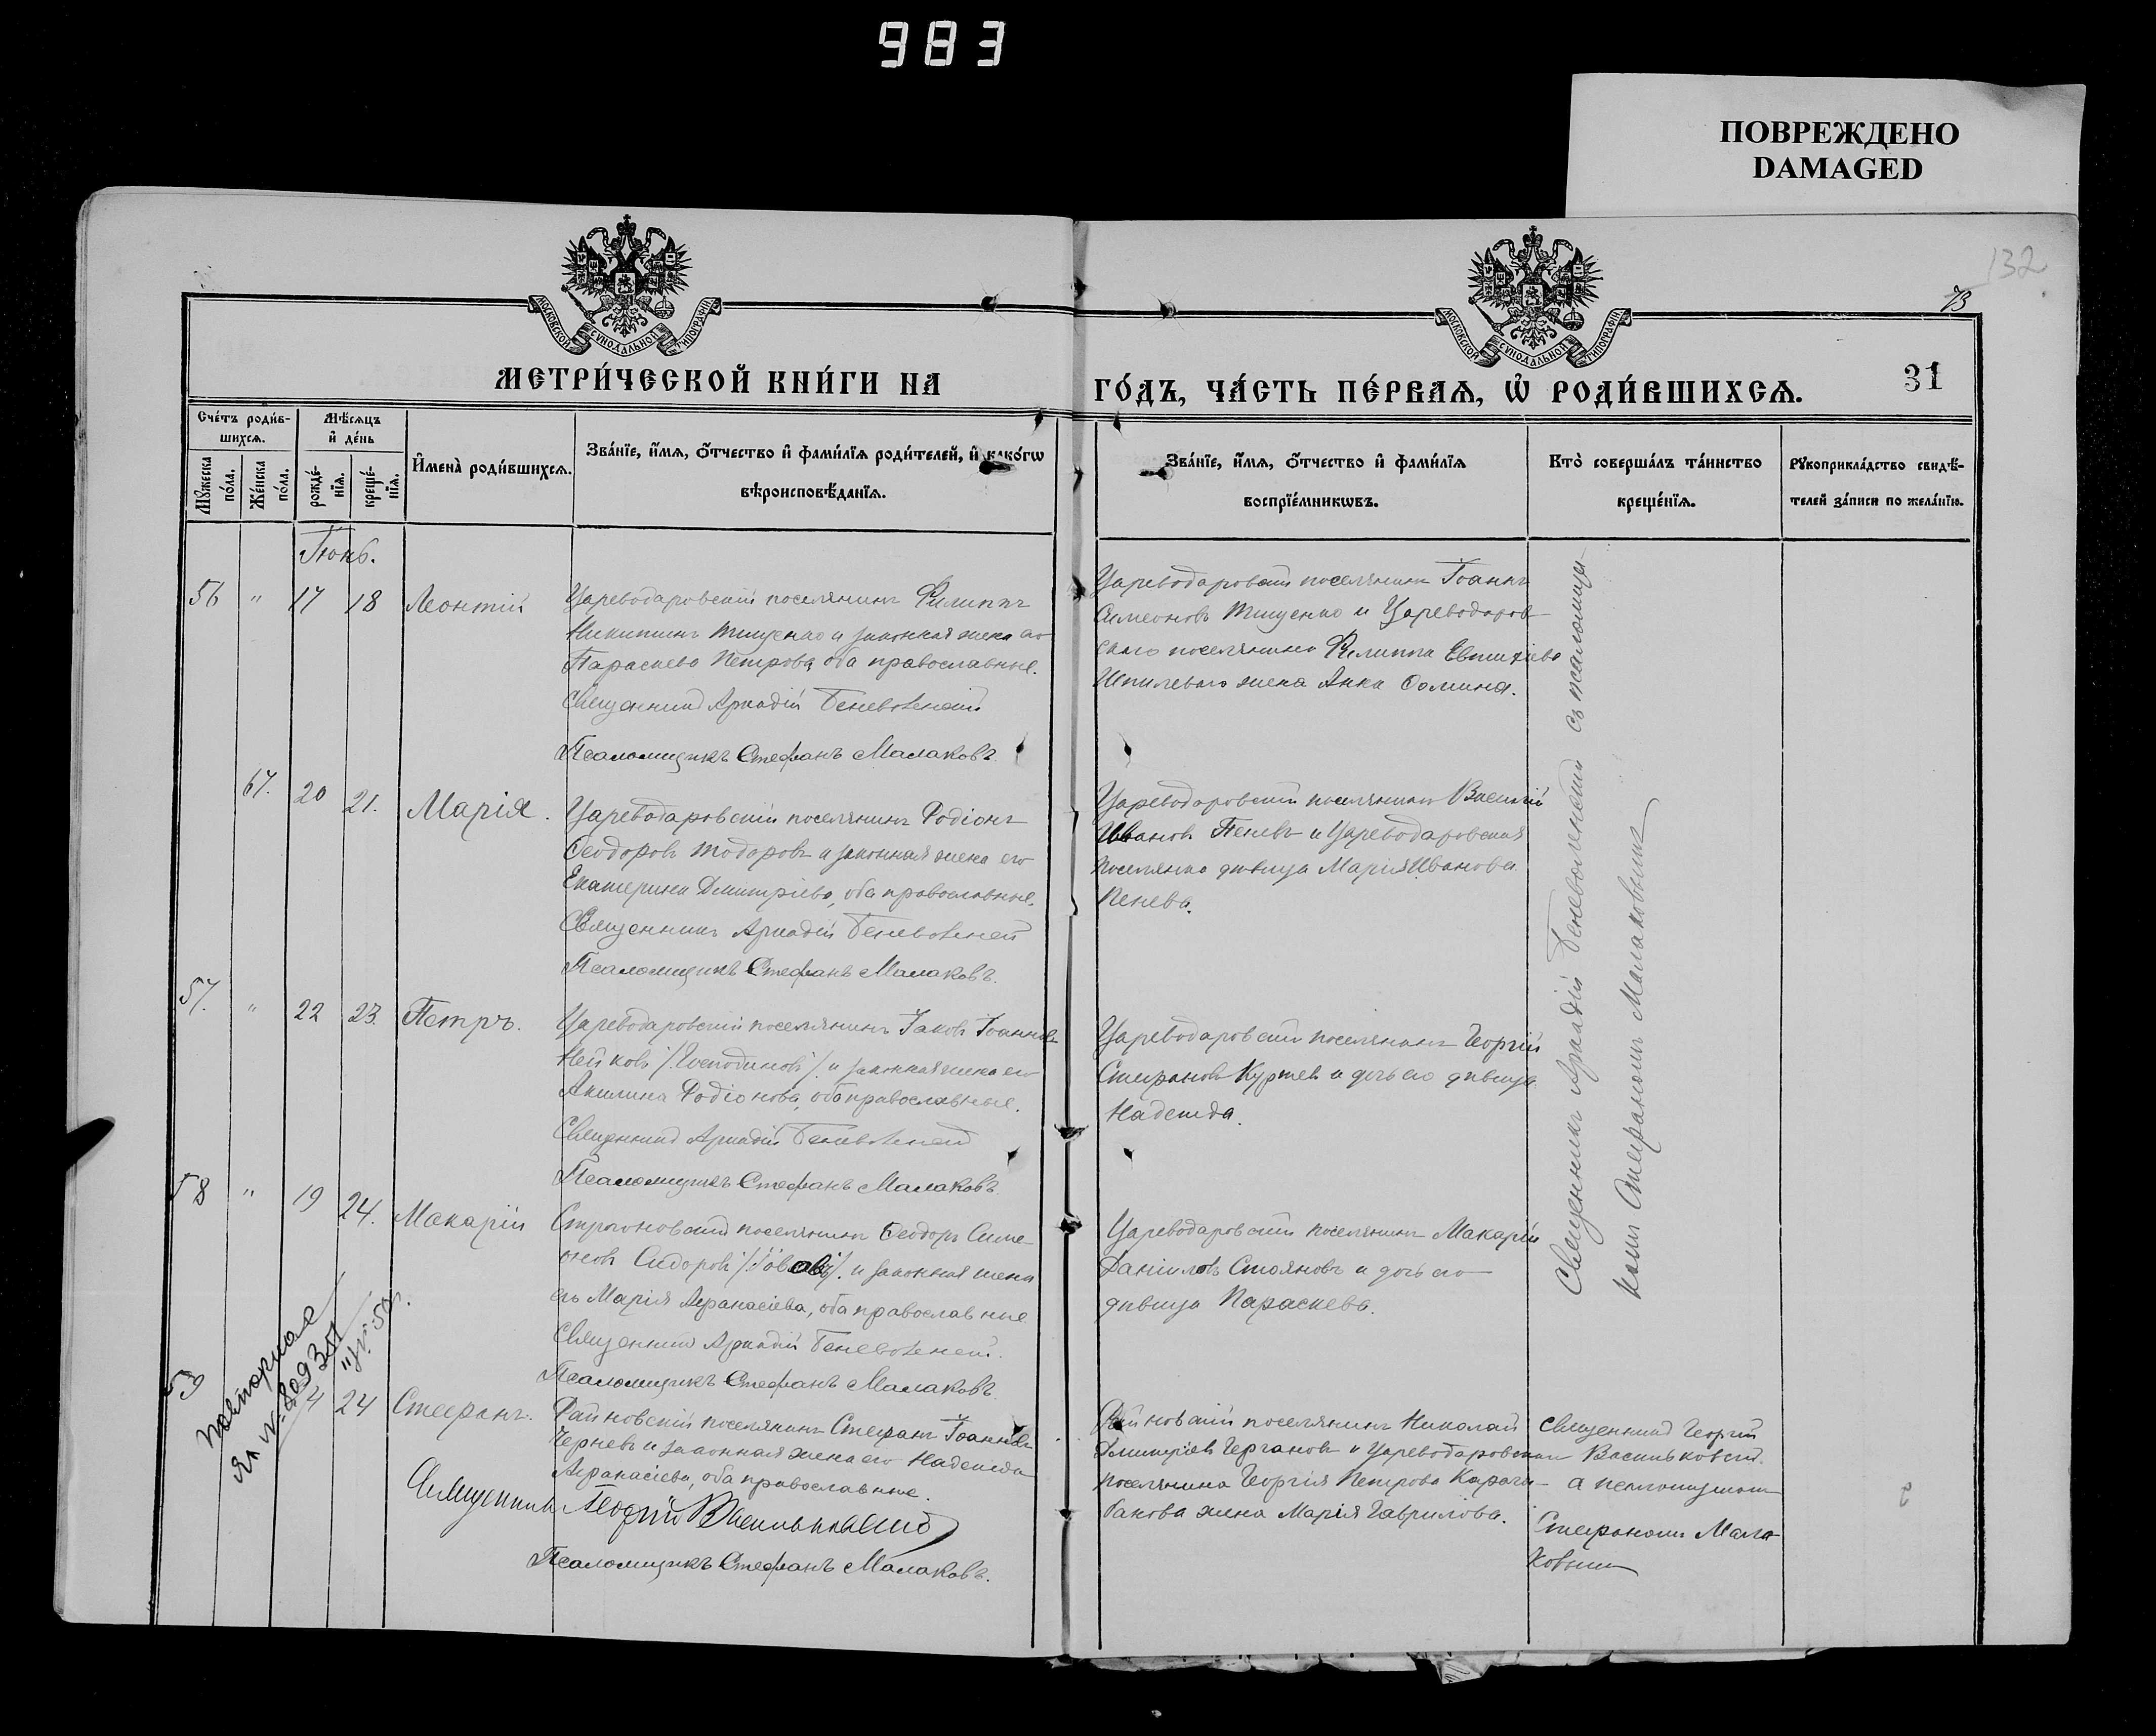 983
ПОВРЕЖДЕНО
DAMAGED
132
73
МОСКОВСКОЙ СУНОДАЛЬНОЙ ТИПОГРАФІИ
МОСКОВСКОЙ СУНОДАЛЬНОЙ ТИПОГРАФІИ
МЕТРИ́ЧЕСКОЙ КНИ́ГИ НА
ГО́ДЪ, ЧА́СТЬ ПЕ́РВАЯ, Ѡ РОДИ́ВШИХСЯ.
31
Сче́тъ роди́в-
шихся.
Мѣ́сяцъ
и҆ де́нь
Мꙋ́жеска по́ла.
Же́нска по́ла.
рожде́нїя.
креще́нїя.
И҆мена̀ роди́вшихся.
Зва́нїе, и҆́мя, ѻ҆́тчество и҆ фами́лїя роди́телей, и҆ како́гѡ
вѣроисповѣ́данїя.
Зва́нїе, и҆́мя, ѻ҆́тчество и҆ фами́лїя
воспрїе́мникѡвъ.
Кто̀ соверша́лъ та́инство
креще́нїя.
Рꙋкоприкла́дство свидѣ́-
телей за́писи по жела́нїю.
Іюнь.
56 " 17 18 Леонтій
Цареводаровскій поселянинъ Филиппъ
Никитинъ Тищенко и законная жена его
Параскева Петрова, оба православные.
Священникъ Аркадій Беневоленскій
Псаломщикъ Стефанъ Малаковъ.
Цареводаровскій поселянинъ Іоаннъ
Симеоновъ Тищенко и Цареводаров-
скаго поселянина Филиппа Евтихіева
Шпилеваго жена Анна Фомина.
67. 20 21. Марія.
Цареводаровскій поселянинъ Родіонъ
Ѳеодоровъ Тодоровъ и законная жена его
Екатерина Димитріева, оба православные.
Священникъ Аркадій Беневоленскій
Псаломщикъ Стефанъ Малаковъ.
Цареводаровскій поселянинъ Василій
Ивановъ Пеневъ и Цареводаровская
поселянка дѣвица Марія Иванова
Пенева.
57. " 22 23. Петръ.
Цареводаровскій поселянинъ Іаковъ Іоанновъ
Нейковъ /Господиновъ/ и законная жена его
Акилина Родіонова, оба православные.
Священникъ Аркадій Беневоленскій
Псаломщикъ Стефанъ Малаковъ.
Цареводаровскій поселянинъ Георгій
Стефановъ Куртев и дочь его дѣвица
Надежда.
58 " 19 24. Макарій
Строгоновскій поселянинъ Ѳеодоръ Симе-
оновъ Сидоровъ и законная жена
его Марія Аѳанасіева, оба православные
Священникъ Аркадій Беневоленскій.
Псаломщикъ Стефанъ Малаковъ.
Цареводаровскій поселянинъ Макарій
Даніиловъ Стояновъ и дочь его
дѣвица Параскева.
Священникъ Аркадій Беневоленскій съ псаломщи-
комъ Стефаномъ Малаковымъ
повторная
59 4 24 Стефанъ.
Райновскій поселянинъ Стефанъ Іоанновъ
Черневъ и законная жена его Надежда
Аѳанасіева, оба православные.
Священникъ Георгій Васильковскій
Псаломщикъ Стефанъ Малаковъ.
Райновскій поселянинъ Николай
Димитріевъ Чергановъ и Цареводаровскаго
поселянина Георгія Петрова Карага-
банова жена Марія Гаврилова.
Священникъ Георгій
Васильковскій
а псаломщикомъ
Стефаномъ Мала-
ковымъ